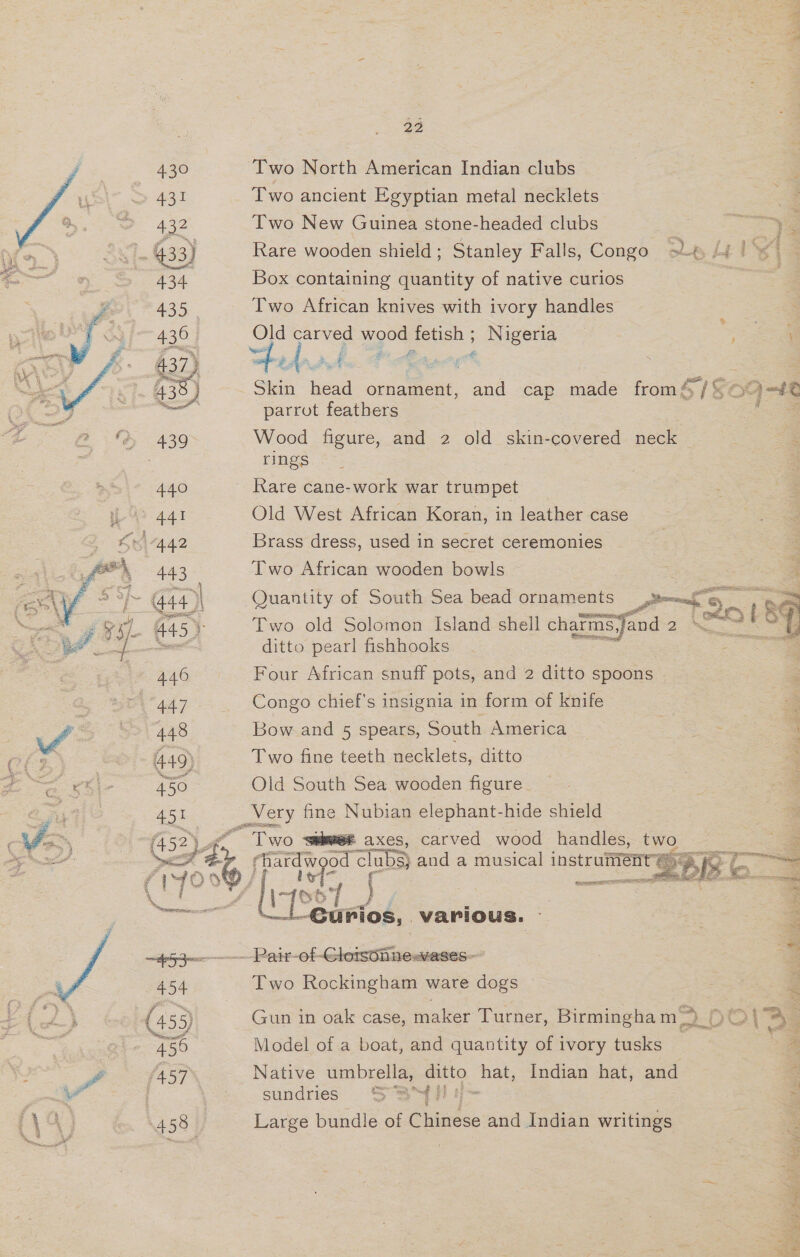 22
430 Two North American Indian clubs
431 Two ancient Egyptian metal necklets
432 Two New Guinea stone-headed clubs
433 Rare wooden shield; Stanley Falls, Congo
434 Box containing quantity of native curios
435 Two African knives with ivory handles
436 Old carved wood fetish; Nigeria
437
438 Skin head ornament, and cap made from
parrot feathers
439 Wood figure, and 2 old skin-covered neck
rings
440 Rare cane-work war trumpet
441 Old West African Koran, in leather case
442 Brass dress, used in secret ceremonies
443 Two African wooden bowls
444 Quantity of South Sea bead ornaments
445 Two old Solomon Island shell charms, and 2
ditto pearl fishhooks
446 Four African snuff pots, and 2 ditto spoons
447 Congo chief's insignia in form of knife
448 Bow and 5 spears, South America
449 Two fine teeth necklets, ditto
450 Old South Sea wooden figure
451 Very fine Nubian elephant-hide shield
452 Two axes, carved wood handles, two
hardwood clubs, and a musical instrument
Curios, various.
453 Pair of Cloisonne vases
454 Two Rockingham ware dogs
455 Gun in oak case, maker Turner, Birmingham
456 Model of a boat, and quantity of ivory tusks
457 Native umbrella, ditto hat, Indian hat, and
sundries
458 Large bundle of Chinese and Indian writings